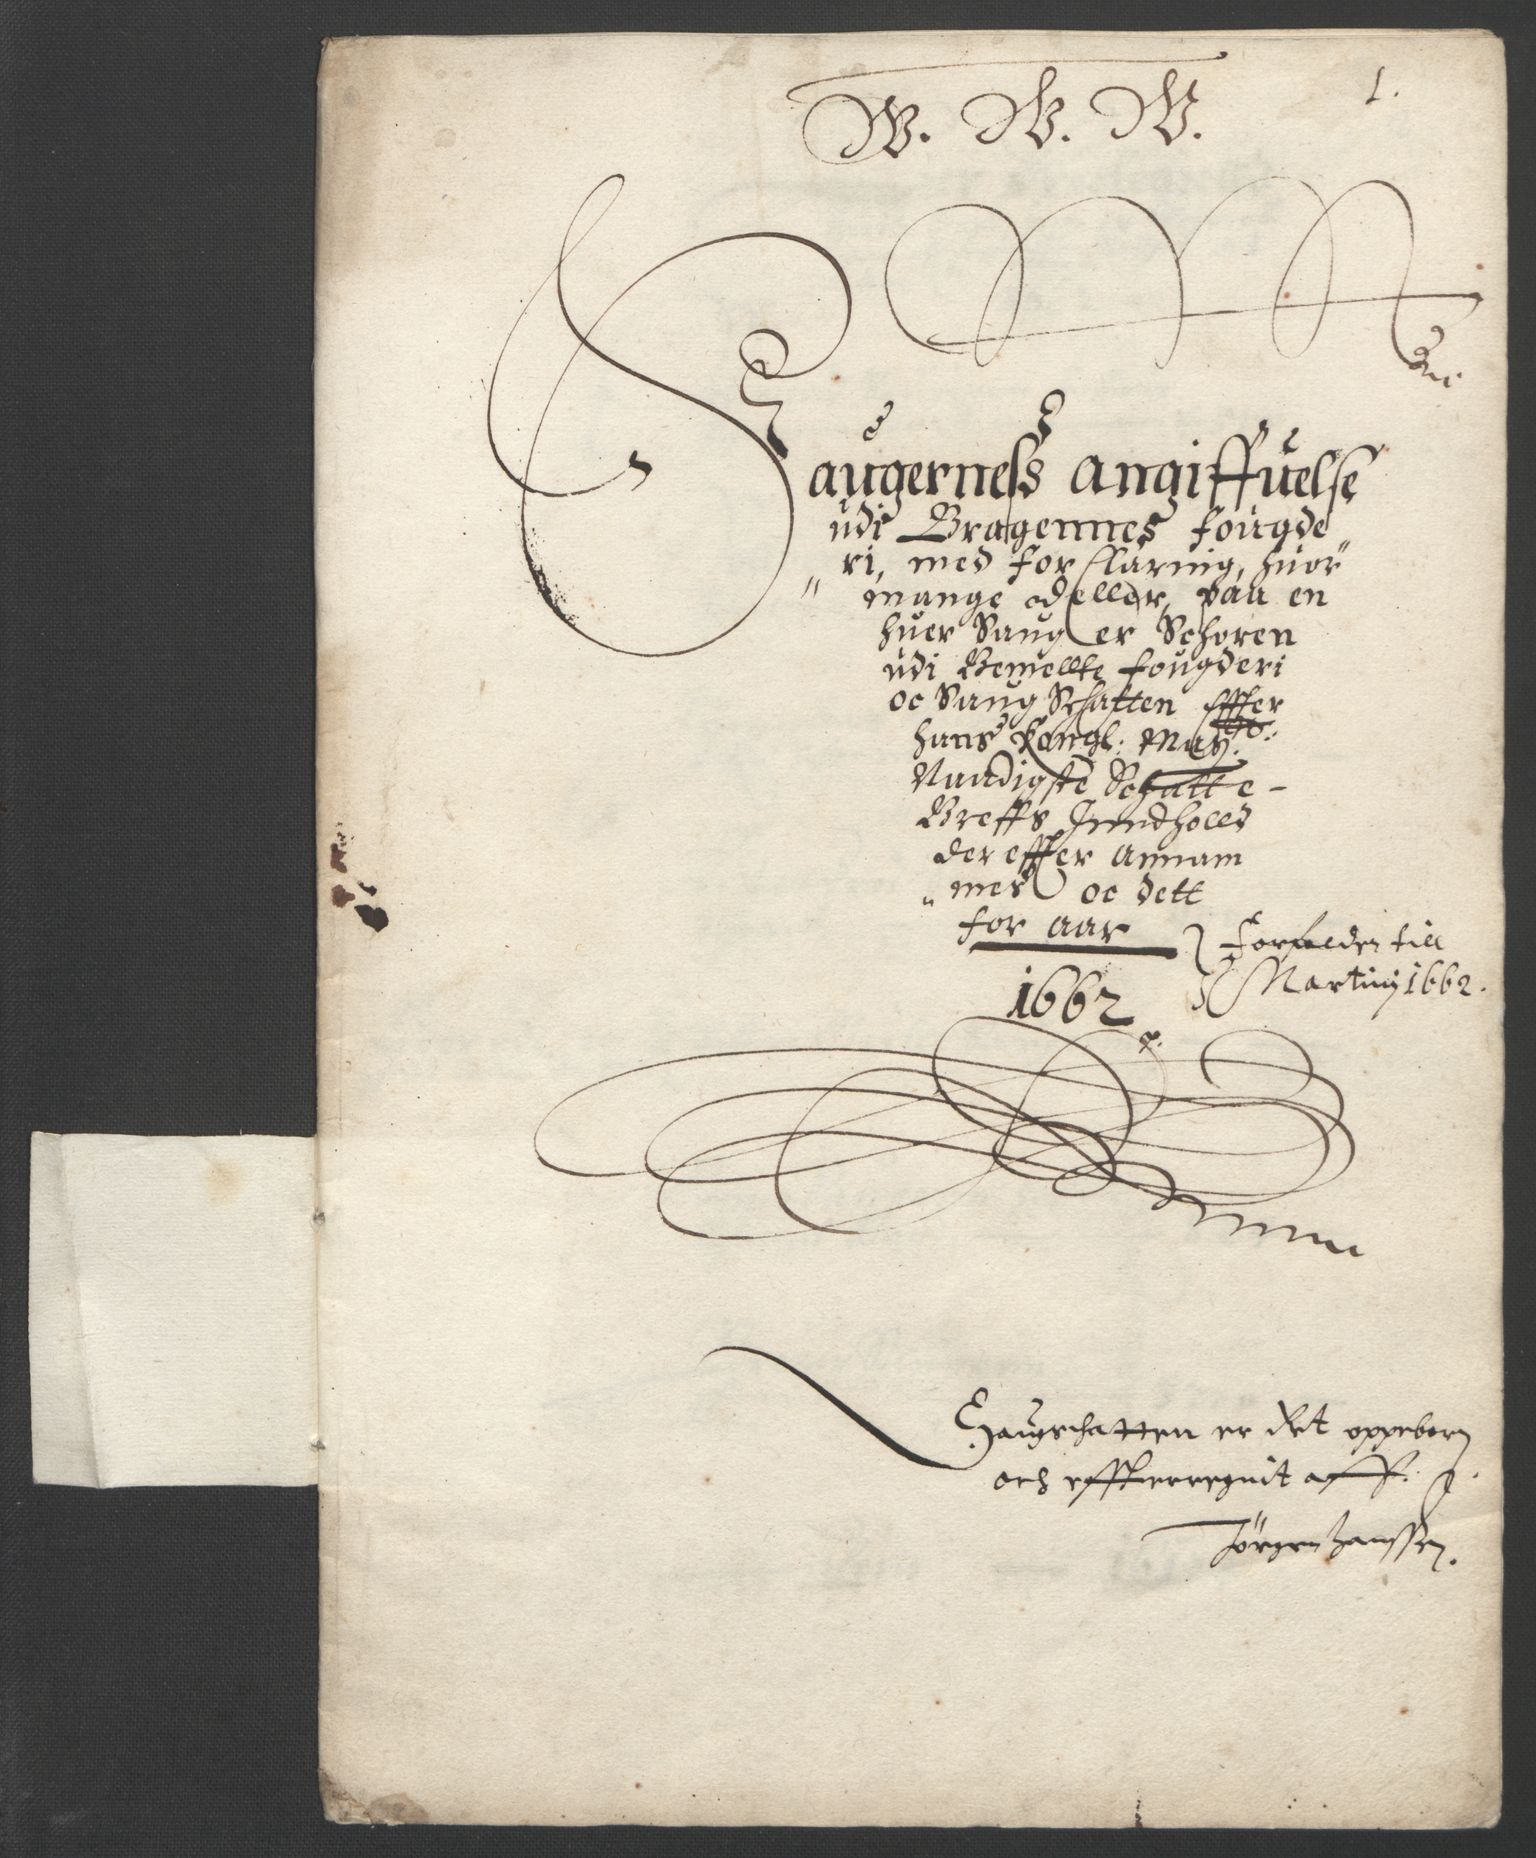 W. W. W.
1.
Saugerness angiffuelse
udi Bragernes fougde
ri, med forklaring, huor
mange deller, paa en
huer Saug er Schoren
udi Bemellte fougderi
oc Saug Schatten Effter
hans Kongl: May:
Naadigste Schatte-
Breffs Inndholld
der effter annam
mes oc dett
for aar
1662
forfalden till
Martinj 1662.
Saugschatten er Ret oppeborn
och effterregnit aff.
Jörgen Hanssen.